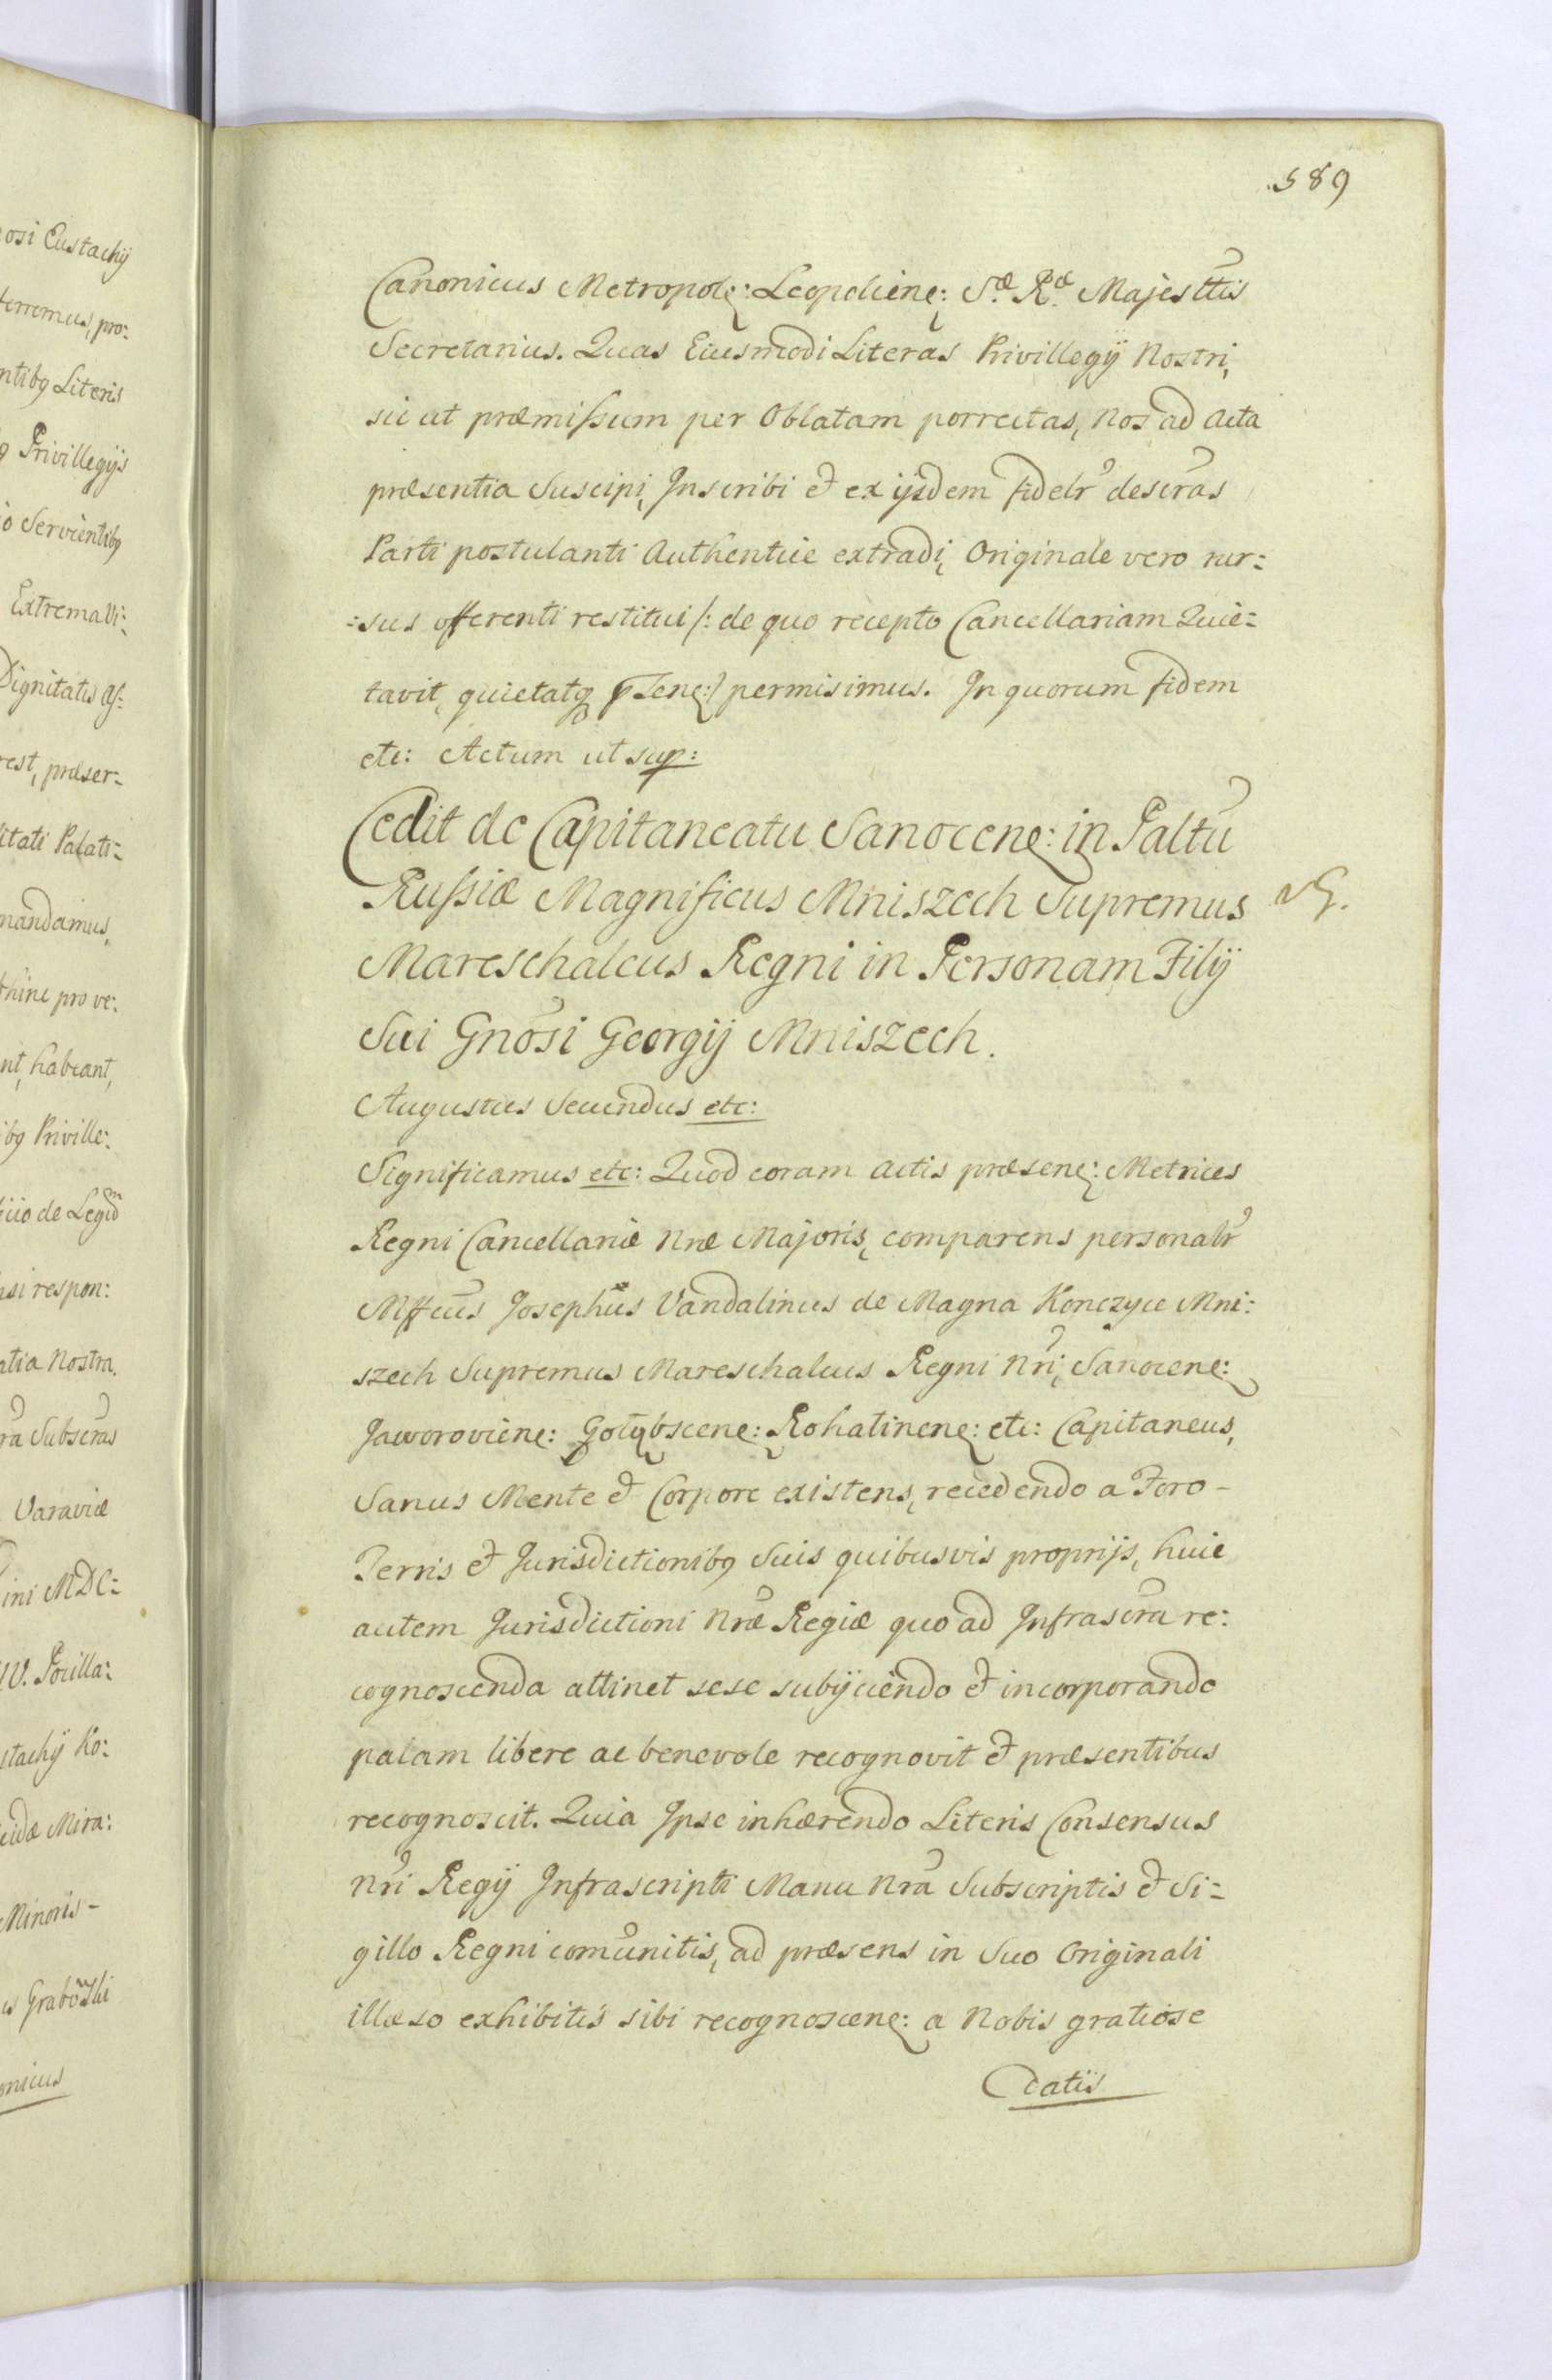 osi Eustachÿ
ferremus, pro:
ntibq Literis
q Privillegijs
io Servientibq
Extrema Vi:
Dignitatis as:
rest, præser=
litati Palati=
mandamus,
thinc pro ve:
nt, habeant,
ibq Priville:
icio de Legim̃
nsi respon:
atia Nostra.
ra Subscras
Varaviæ
ini MDC=
W. Pocilla:
stachÿ Ko:
cidæ Mira:
Minoris-
us Grabowski
onicus
589
Canonicus Metropolę: Leopolienę: S.æ R.æ Majesttis
Secretarius. Quas Eiusmodi Literas Privillegÿ Nostri,
sic ut præmissum per Oblatam porrectas, Nos ad Acta
præsentia Suscipi, Inscribi et ex ijsdem fidelr descras
Parti postulanti Authentice extradi, Originale vero rur:
=sus offerenti restitui /: de quo recepto Cancellariam Quie=
tavit, quietatq pstenę:/ permisimus. In quorum fidem
etc: Actum ut sup:
Cedit de Capitaneatu Sanocenę: in Paltu
Russiæ Magnificus Mniszech Supremus
Mareschalcus Regni in Personam Filÿ
Sui Gnosi Georgij Mniszech.
Augustus Secundus etc:
Significamus etc: Quod coram actis præsenę: Metrices
Regni Cancellariæ Nræ Majoris, comparens personalr
Mffcus Josephus Vandalinus de Magna Konczyce Mni:
szech Supremus Mareschalcus Regni Nri, Sanocenę:
Jaworovienę: Gołąbscenę: Rohatinenę: etc: Capitaneus,
Sanus Mente et Corpore existens, recedendo a Foro-
Terris et Jurisdictionibq Suis quibusvis proprijs, huic
autem Jurisdictioni Nræ Regiæ quo ad Infrascra re:
cognoscenda attinet sese subijciendo et incorporando
palam libere ac benevole recognovit et præsentibus
recognoscit. Quia Ipse inhærendo Literis Consensus
Nri Regÿ Infrascripti Manu Nra Subscriptis et Si=
gillo Regni comunitis, ad præsens in Suo Originali
illæso exhibitis sibi recognoscenę: a Nobis gratiose
datis